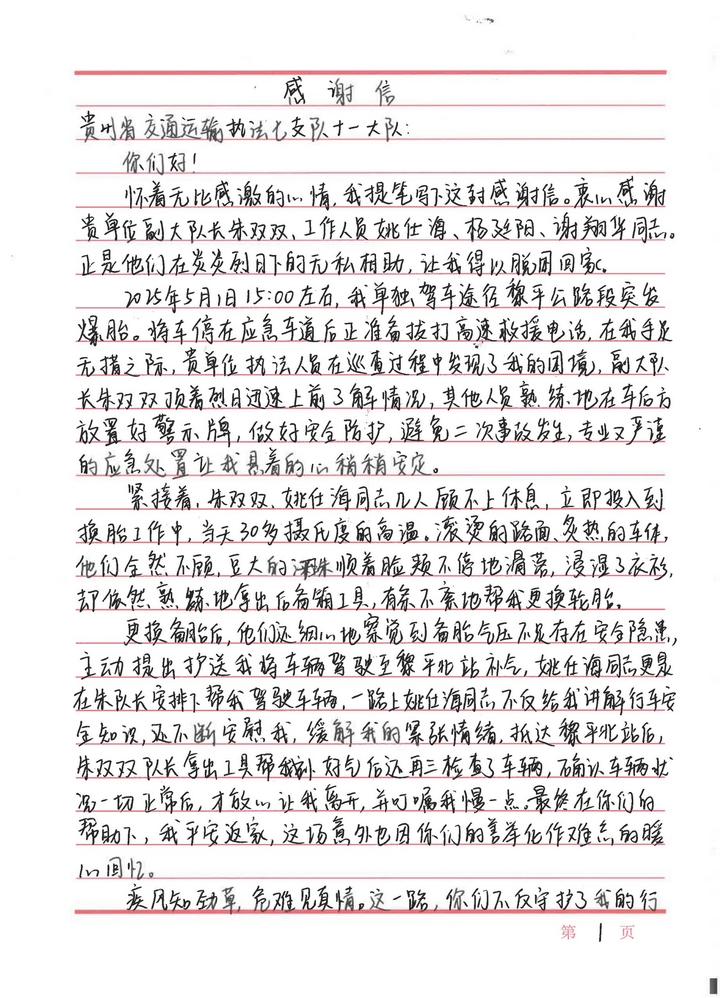 感谢信
贵州省交通运输执法七支队十一大队:
你们好!
怀着无比感激的心情,我提笔写下这封感谢信。衷心感谢
贵单位副大队长朱双双、工作人员姚仕海、杨廷阳、谢翔华同志。
正是他们在炎炎烈日下的无私相助,让我得以脱困回家。
2025年5月1日15:00左右,我单独驾车途径黎平公路段突发
爆胎。将车停在应急车道后正准备拨打高速救援电话,在我手足
无措之际,贵单位执法人员在巡查过程中发现了我的困境,副大队
长朱双双顶着烈日迅速上前了解情况,其他人员熟练地在车后方
放置好警示牌,做好安全防护,避免二次事故发生,专业又严谨
的应急处置让我悬着的心稍稍安定。
紧接着,朱双双、姚仕海同志几人顾不上休息,立即投入到
换胎工作中,当天30多摄氏度的高温。滚烫的路面、炙热的车体,
他们全然不顾,豆大的汗珠顺着脸颊不停地滑落,浸湿了衣衫,
却依然熟练地拿出后备箱工具,有条不紊地帮我更换轮胎。
更换备胎后,他们还细心地察觉到备胎气压不足存在安全隐患,
主动提出护送我将车辆驾驶至黎平北站补气,姚仕海同志更是
在朱队长安排下帮我驾驶车辆,一路上姚仕海同志不仅给我讲解行车安
全知识,还不断安慰我,缓解我的紧张情绪,抵达黎平北站后,
朱双双队长拿出工具帮我补好气后还再三检查了车辆,确认车辆状
况一切正常后,才放心让我离开,并叮嘱我慢一点。最终在你们的
帮助下,我平安返家,这场意外也因你们的善举化作难忘的暖
心回忆。
疾风知劲草,危难见真情。这一路,你们不仅守护了我的行
第 1 页